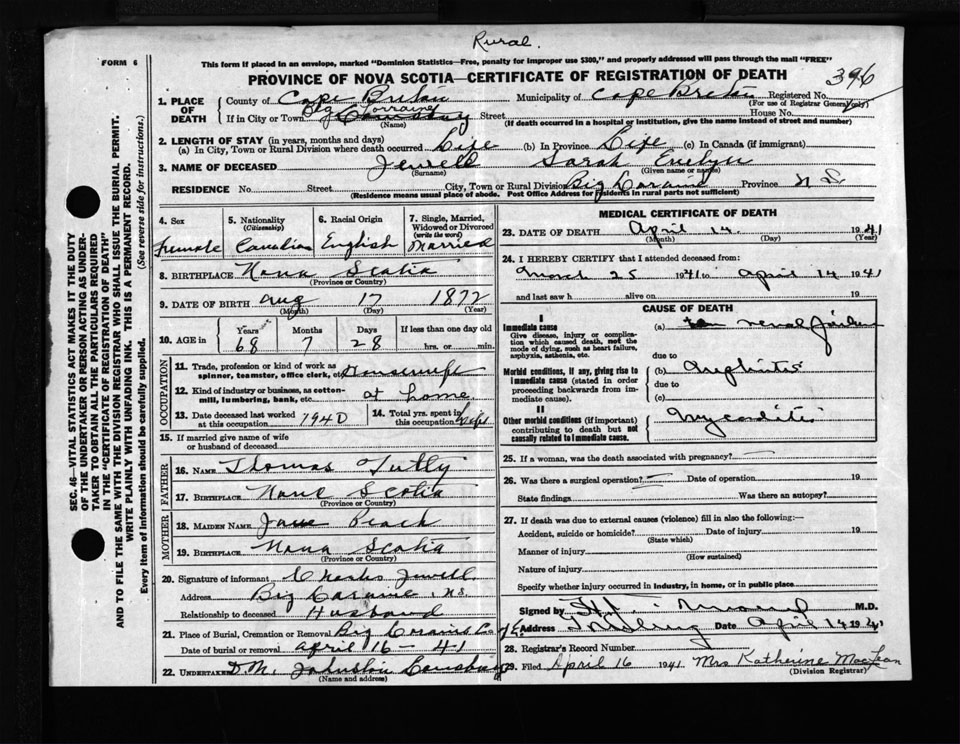 Rural.
FORM 6
This form if placed in an envelope, marked "Dominion Statistics—Free, penalty for improper use $300," and properly addressed will pass through the mail "FREE"
PROVINCE OF NOVA SCOTIA—CERTIFICATE OF REGISTRATION OF DEATH
396
1. PLACE OF DEATH
County of Cape Breton Municipality of Cape Breton Registered No.
(For use of Registrar General only)
If in City or Town Big Lorraine Street House No.
(Name) (If death occurred in a hospital or institution, give the name instead of street and number)
2. LENGTH OF STAY (in years, months and days)
(a) In City, Town or Rural Division where death occurred Life (b) In Province Life (c) In Canada (if immigrant)
3. NAME OF DECEASED Jewell Sarah Evelyn
(Surname) (Given name or names)
RESIDENCE No. Street City, Town or Rural Division Big Loraine Province N S
(Residence means usual place of abode. Post Office Address for Residents in rural parts not sufficient)
4. Sex Female
5. Nationality (Citizenship) Canadian
6. Racial Origin English
7. Single, Married, Widowed or Divorced (write the word) Married
8. BIRTHPLACE Nova Scotia
(Province or Country)
9. DATE OF BIRTH Aug 17 1872
(Month) (Day) (Year)
10. AGE in Years 68 Months 7 Days 28 If less than one day old hrs. or min.
OCCUPATION
11. Trade, profession or kind of work as spinner, teamster, office clerk, etc. Housewife
12. Kind of industry or business, as cotton-mill, lumbering, bank, etc. at home
13. Date deceased last worked at this occupation 1940
14. Total yrs. spent in this occupation Life
15. If married give name of wife or husband of deceased
FATHER
16. NAME Thomas Tutty
17. BIRTHPLACE Nova Scotia
MOTHER
18. MAIDEN NAME Jane Peach
19. BIRTHPLACE Nova Scotia
(Province or Country)
20. Signature of informant Charles Jewell
Address Big Loraine N.S.
Relationship to deceased Husband
21. Place of Burial, Cremation or Removal Big Loraine C.B.
Date of burial or removal April 16 - 41
22. UNDERTAKER D.M. Johnston Louisburg
(Name and address)
MEDICAL CERTIFICATE OF DEATH
23. DATE OF DEATH April 14. 1941
(Month) (Day) (Year)
24. I HEREBY CERTIFY that I attended deceased from:
March 25 1941 to April 14 1941
and last saw h alive on 19
CAUSE OF DEATH
I
Immediate cause
Give disease, injury or complication which caused death, not the mode of dying, such as heart failure, asphyxia, asthenia, etc.
(a) renal failure
due to
Morbid conditions, if any, giving rise to immediate cause (stated in order proceeding backwards from immediate cause).
(b) Nephritis
due to
(c)
II
Other morbid conditions (if important) contributing to death but not causally related to immediate cause.
Myocarditis
25. If a woman, was the death associated with pregnancy?
26. Was there a surgical operation? Date of operation 19
State findings Was there an autopsy?
27. If death was due to external causes (violence) fill in also the following:—
Accident, suicide or homicide? Date of injury 19
(State which)
Manner of injury
(How sustained)
Nature of injury
Specify whether injury occurred in industry, in home, or in public place
Signed by M.D.
Address Date April 14 1941
28. Registrar's Record Number
29. Filed April 16 1941 Mrs Katherine MacLean
(Division Registrar)
SEC. 46—VITAL STATISTICS ACT MAKES IT THE DUTY
OF THE UNDERTAKER OR PERSON ACTING AS UNDER-
TAKER TO OBTAIN ALL THE PARTICULARS REQUIRED
IN THE "CERTIFICATE OF REGISTRATION OF DEATH"
AND TO FILE THE SAME WITH THE DIVISION REGISTRAR WHO SHALL ISSUE THE BURIAL PERMIT.
WRITE PLAINLY WITH UNFADING INK. THIS IS A PERMANENT RECORD.
Every item of information should be carefully supplied. (See reverse side for instructions.)